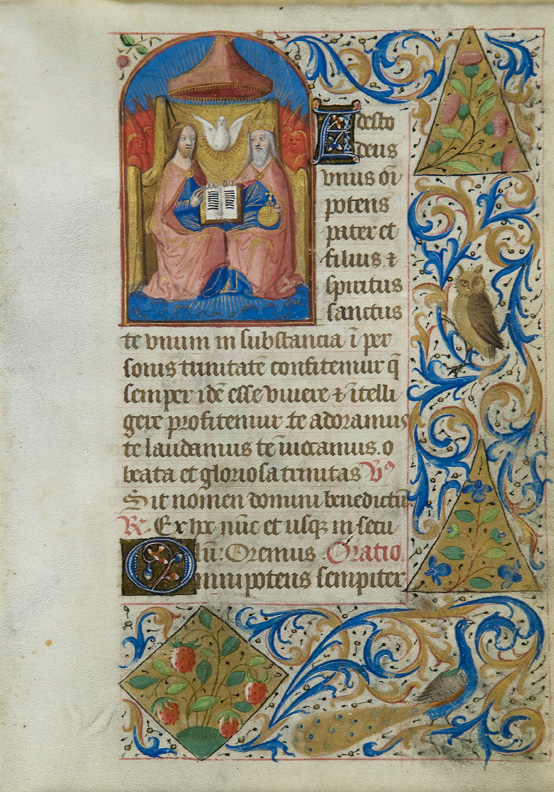 Adesto
deus
vnus oi
potens
pater et
filius ⁊
spiritus
sanctus
te vnum in substancia ī per
sonis trinitatē confitemur q̄
semper idē esse viuere ⁊ ītelli
gere profitemur te adoramus
te laudamus te īuocamus o
beata et gloriosa trinitas V⁹
Sit nomen domini benedictū
R. Ex hoc nūc et usq̄ in secu
lū: Oremus Oratio
Omnipotens sempiter